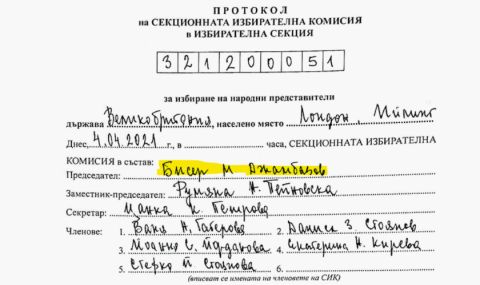 ПРОТОКОЛ
на СЕКЦИОННАТА ИЗБИРАТЕЛНА КОМИСИЯ
в ИЗБИРАТЕЛНА СЕКЦИЯ
3 2 1 2 0 0 0 5 1
за избиране на народни представители
държава Великобритания, населено място Лондон, Илинг
Днес, 4.04.2021 г., в часа, СЕКЦИОННАТА ИЗБИРАТЕЛНА
КОМИСИЯ в състав:
Председател: Бисер М Джамбазов
Заместник-председател: Румяна Н. Петновска
Секретар: Манка К Петрова
Членове: 1. Ваня Н. Габерова 2. Даниел З Стоянов
3. Йоанна С. Йорданова 4. Екатерина Н. Кирева
5. Стерко Й Стоянова 6.
(вписват се имената на членовете на СИК)